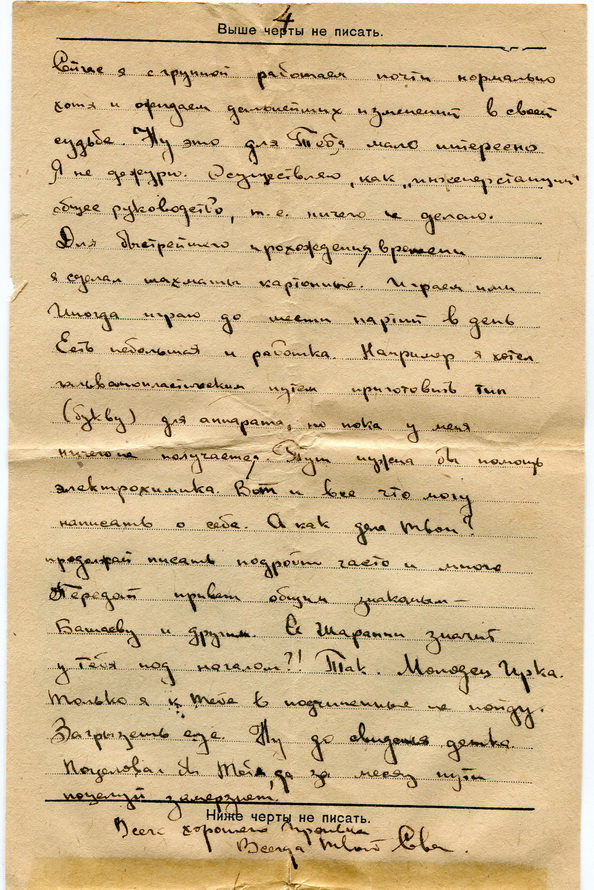 4
Выше черты не писать.
Сейчас я с группой работаем почти нормально
хотя и ожидаем дальнейших изменений в своей
судьбе. Ну это для Тебя мало интересно
Я не дежурю. Осуществляю, как „инженер станции"
общее руководство, т.е. ничего не делаю.
Для быстрейшего прохождения времени
я сделал шахматы картонные. Играем ими
Иногда играю до шести партий в день
Есть небольшая и работка. Например я хотел
гальванопластическим путем приготовить тип
(букву) для аппарата, но пока у меня
ничего не получается. Тут нужна бы помощь
электрохимика. Вот и все что могу
написать о себе. А как дела твои?
продолжай писать подробно часто и много
Передай привет общим знакомым —
и другим. А Шарапин значит
у тебя под началом?! Так. Молодец Ирка.
Только я к тебе в подчиненные не пойду.
Загрызешь еще. Ну до свиданья детка.
Поцеловал бы Тебя, да за месяц пути
поцелуй замерзнет.
Ниже черты не писать.
Всего хорошего
Всегда твой